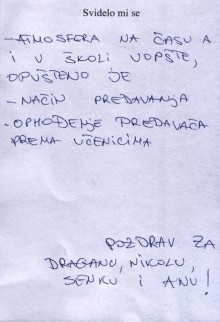 Svidelo mi se
- ATMOSFERA NA ČASU A
I U ŠKOLI UOPŠTE,
OPUŠTENO JE
- NAČIN PREDAVANJA
- OPHOĐENJE PREDAVAČA
PREMA UČENICIMA
POZDRAV ZA
DRAGANU, NIKOLU,
SENKU I ANU!